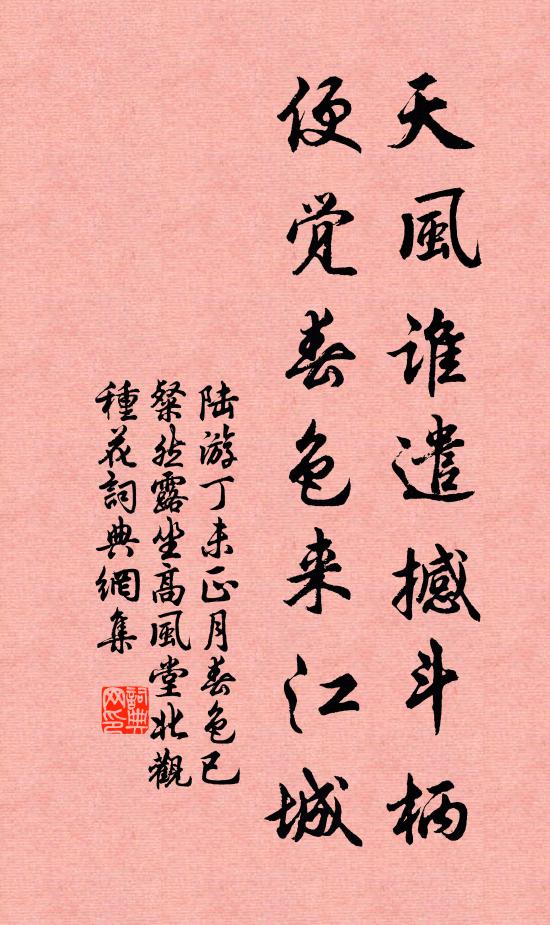 天風谁遣撼斗柄
便觉春色来江城
陆游丁未正月春色已
粲然露坐高風堂北觀
種花詞典網集
詞典
网印